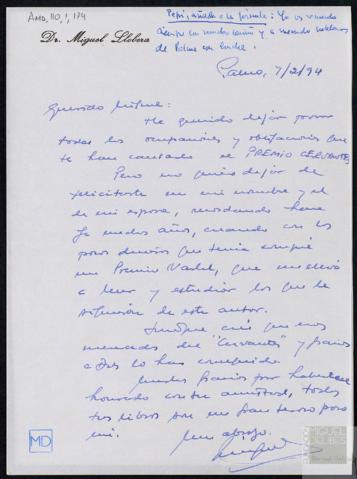 AMD, 110, 1, 174
Pepi, añade a la presente: Yo os recuerdo
siempre con mucho cariño y a menudo hablamos
de Palma con
Dr. Miguel Llobera
Palma, 7/2/94
Querido Miguel:
He querido dejar pasar
todas las ocupaciones y obligaciones que
te han causado el PREMIO CERVANTES
Pero no quiero dejar de
felicitarte en mi nombre y el
de mi esposa, recordando hace
ya muchos años, cuando con los
pocos dineros que tenía compré
un Premio Nadal, que me llevó
a leer y estudiar los que le
siguieron de este autor.
Siempre creí que eras
merecedor del "Cervantes" y gracias
a Dios lo has conseguido
Muchas gracias por haberme
honrado con tu amistad, todos
tus libros son un gran tesoro para
mi.
Un abrazo.
MD
MIGUEL
DELIBES